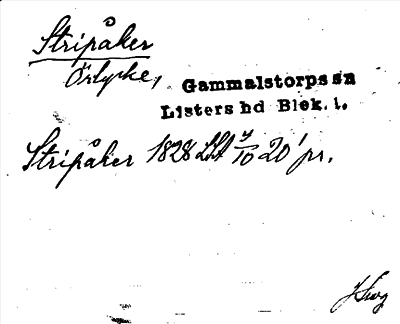 Stripåker
Örlycke,
Gammalstorps sn
Listers hd Blek. l.
Stripåker 1828 LSA 7/10 20' pr.